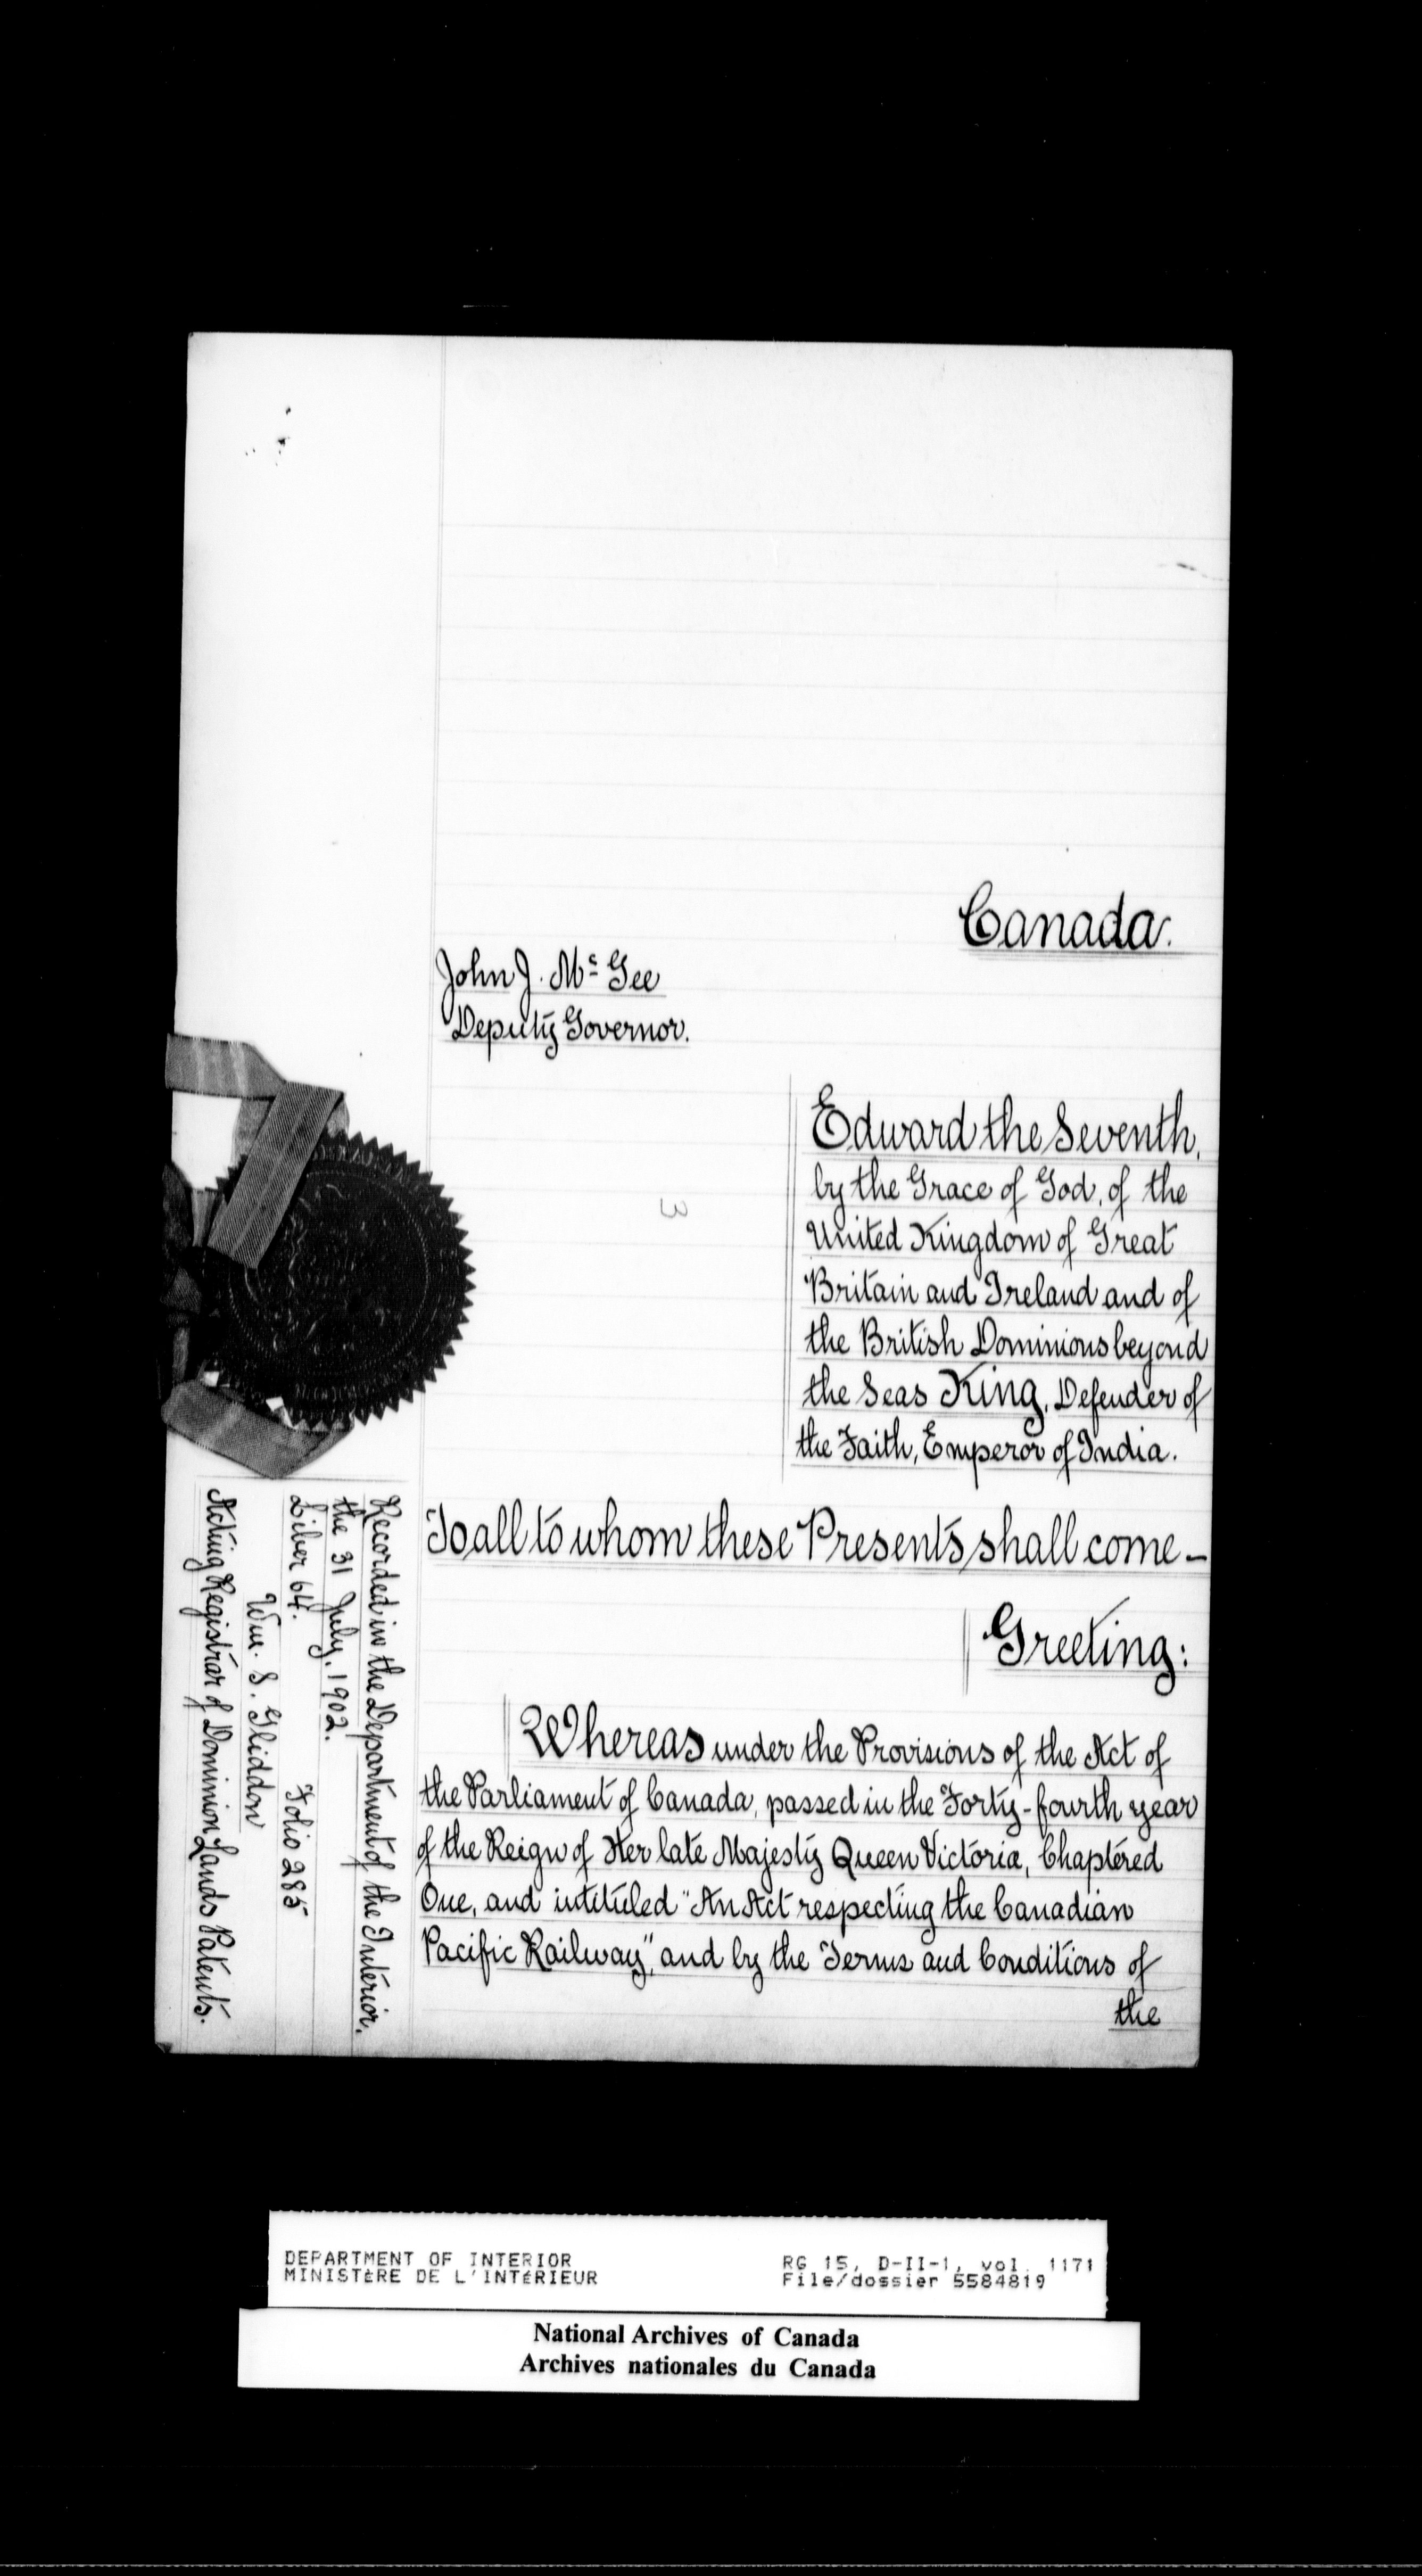 Canada.
John J. Mc Gee
Deputy Governor.
Edward the Seventh,
by the Grace of God, of the
United Kingdom of Great
Britain and Ireland and of
the British Dominions beyond
the Seas King, Defender of
the Faith, Emperor of India.
To all to whom these Presents shall come –
Greeting:
Whereas under the Provisions of the Act of
the Parliament of Canada, passed in the Forty-fourth year
of the Reign of Her late Majesty Queen Victoria, Chaptered
One, and intituled "An Act respecting the Canadian
Pacific Railway", and by the Terms and Conditions of
the
Recorded in the Department of the Interior,
the 31 July, 1902.
Liber 64. Folio 285
Wm. S. Gliddon
Acting Registrar of Dominion Lands Patents.
3
DEPARTMENT OF INTERIOR
MINISTÈRE DE L'INTÉRIEUR
RG 15, D-II-1, vol. 1171
File/dossier 5584819
National Archives of Canada
Archives nationales du Canada